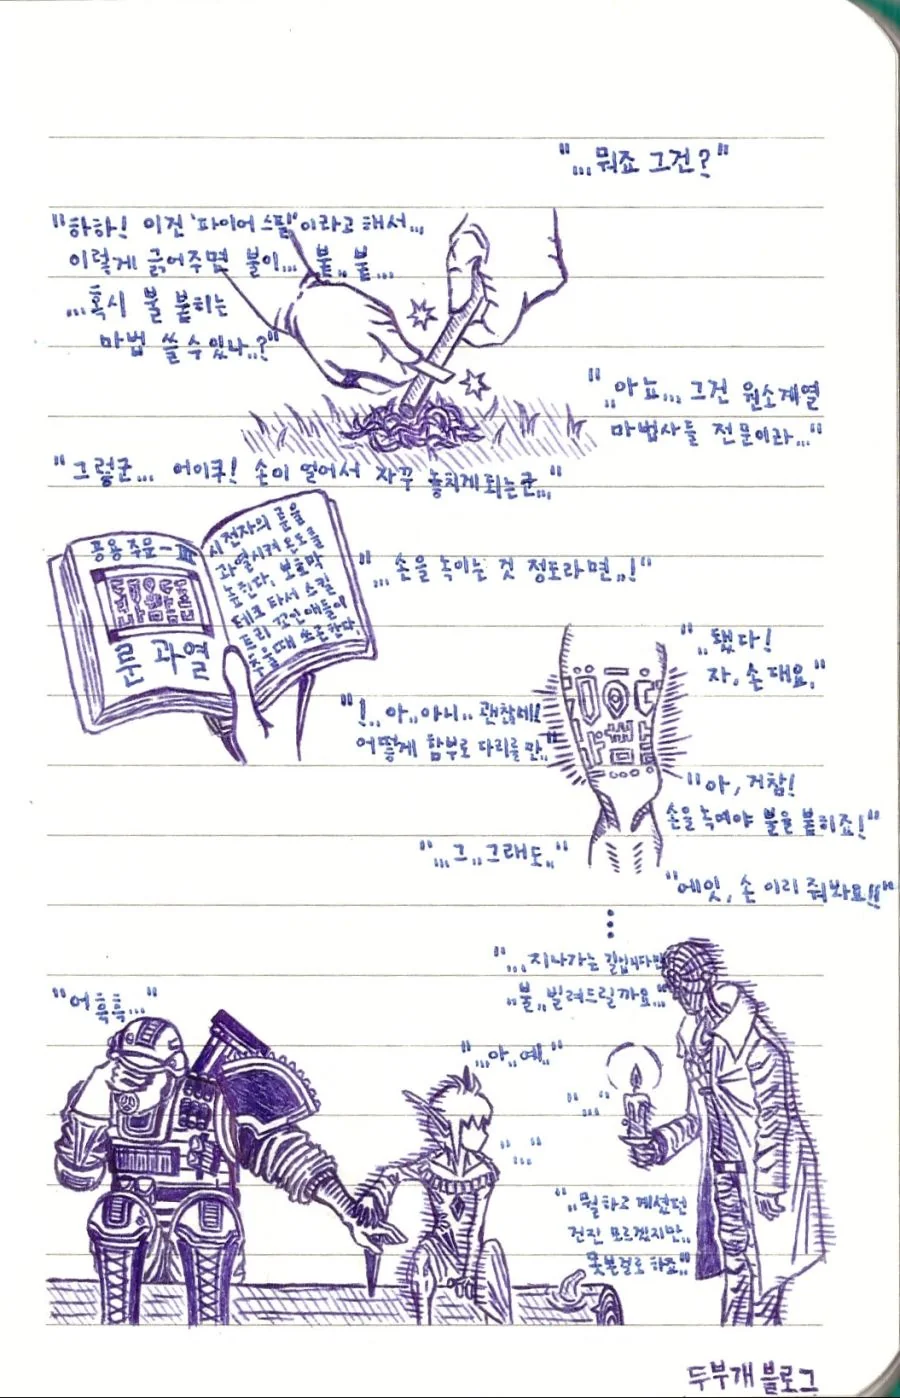 "...뭐죠 그건?"
"하하! 이건 '파이어 스틸'이라고 해서...
이렇게 긁어주면 불이... 붙.. 붙...
...혹시 불 붙히는
마법 쓸 수 있나..?"
"..아뇨... 그건 원소계열
마법사들 전문이라..."
"그렇군... 어이쿠! 손이 얼어서 자꾸 놓치게 되는군..."
공용주문-III
룬 과열
시전자의 룬을
과열시켜 온도를
높힌다. 보호막
테크 타서 스킬
트리 꼬인 애들이
추울때 쓰곤한다.
"...손을 녹이는 것 정도라면..!"
"..됐다!
자, 손 대요."
"!..아..아니.. 괜찮네!!
어떻게 함부로 다리를 만.."
"아, 거참!
손을 녹여야 불을 붙히죠!"
"...그..그래도.."
"에잇, 손 이리 줘봐요!!"
"...지나가는 길입니다만
..불..빌려드릴까요..."
"어흑흑..."
"...아..예.."
"..."
"..."
"..뭘하고 계셨던
건진 모르겠지만..
못본걸로 하죠.."
두부개 블로그